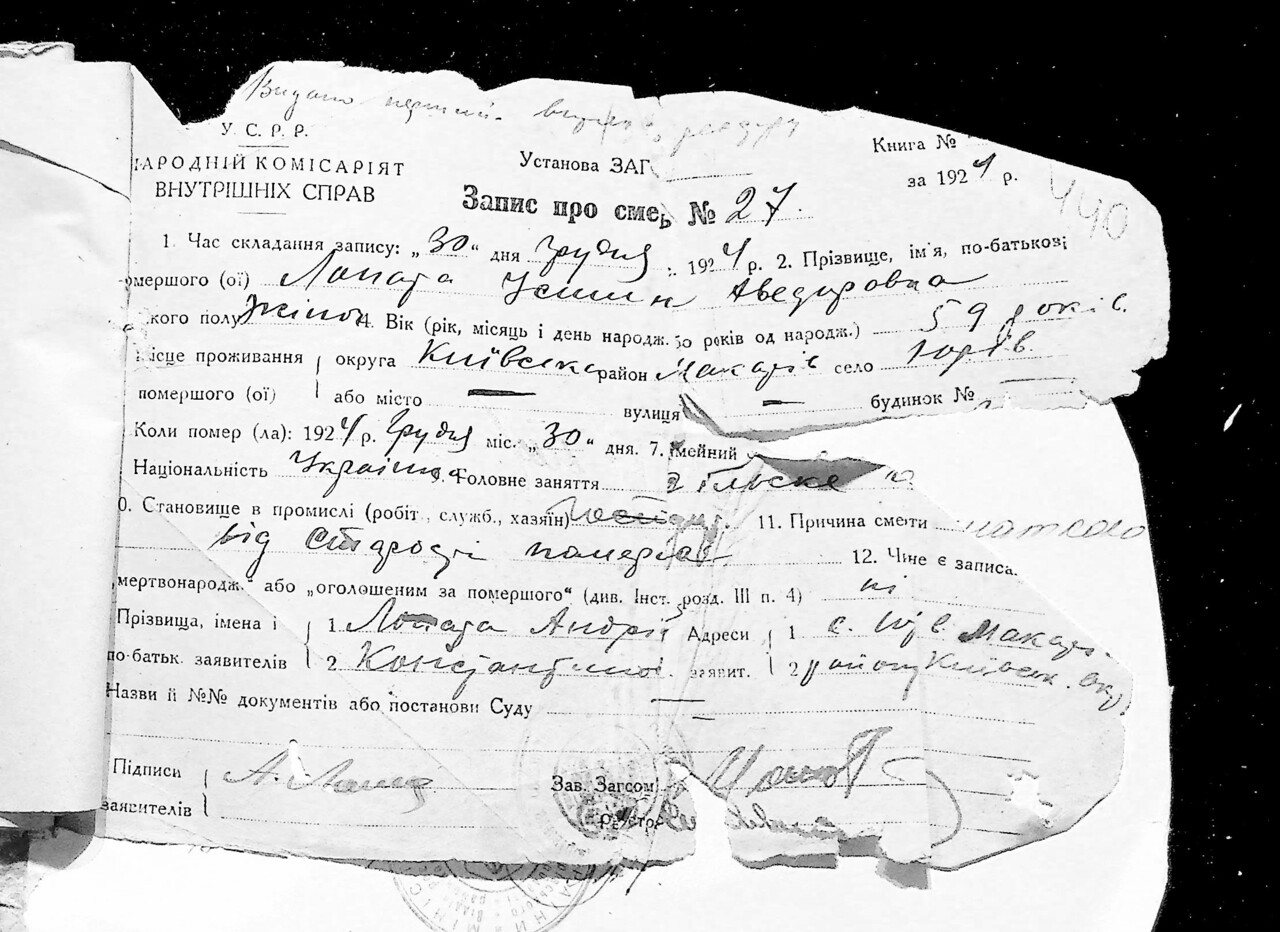 Видано
У. С. Р. Р.
АРОДНІЙ КОМІСАРІЯТ
ВНУТРІШНІХ СПРАВ
Установа ЗАГ
Книга №
за 1924 р.
440
Запис про сме № 27
1. Час складання запису: „30“ дня грудня 1924 р. 2. Прізвище, ім'я, по-батькові
помершого (ої) Лопата Устин
кого полу жіноч 4. Вік (рік, місяць і день народж. бо років од народж.) 59 років.
місце проживання округа Київська район Макарів село Юрів
помершого (ої) або місто — вулиця — будинок №
Коли помер (ла): 1924 р. Грудня міс. „30“ дня. 7. імейний
Національність Україн Головне заняття сільске
0. Становище в промислі (робіт., служб., хазяїн) 11. Причина смерти
від старості померла 12. Чи не є записа.
мертвонародж.“ або „оголошеним за помершого“ (див. Інст. розд. III п. 4) ні
Прізвища, імена і 1. Лопата Андрій Адреси 1 с. Юрів Макар.
по-батьк. заявителів 2. Константинов заявит. 2 району Київськ. Окр.
Назви й №№ документів або постанови Суду —
Підписи А. Лопата Зав. Загсом
заявителів